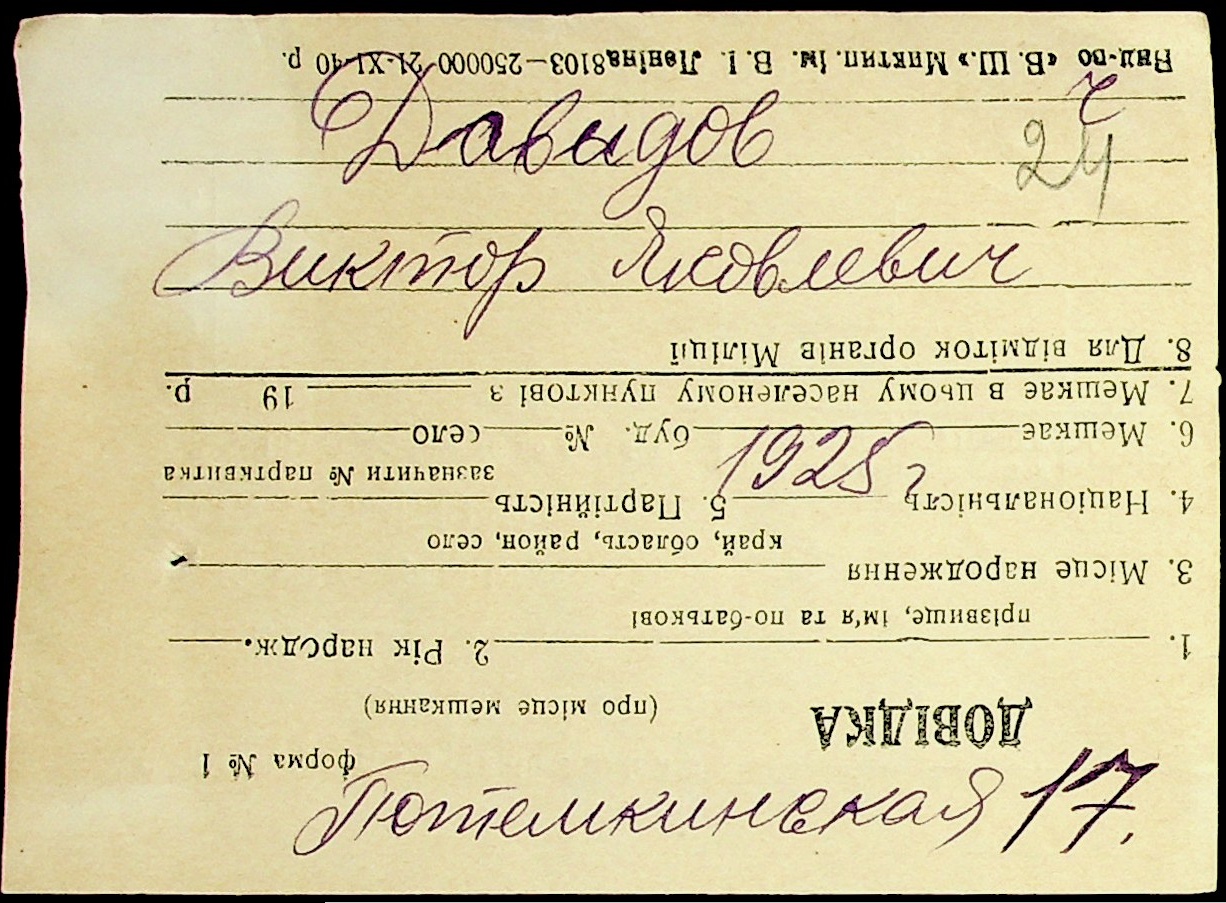 Давыдов
24
Виктор Яковлевич
1925 г
Потемкинская 17.
форма № 1
ДОВІДКА
(про місце мешкання)
1. 2. Рік народж.
прізвище, ім'я та по-батькові
3. Місце народження
край, область, район, село
4. Національність 5. Партійність
зазначити № партквитка
6. Мешкає буд. № село
7. Мешкає в цьому населеному пунктові з 19 р.
8. Для відміток органів Міліції
Вид-во «В. Ш.» Миктип. ім. В. І. Леніна 8103—250000 21-XI-40 р.